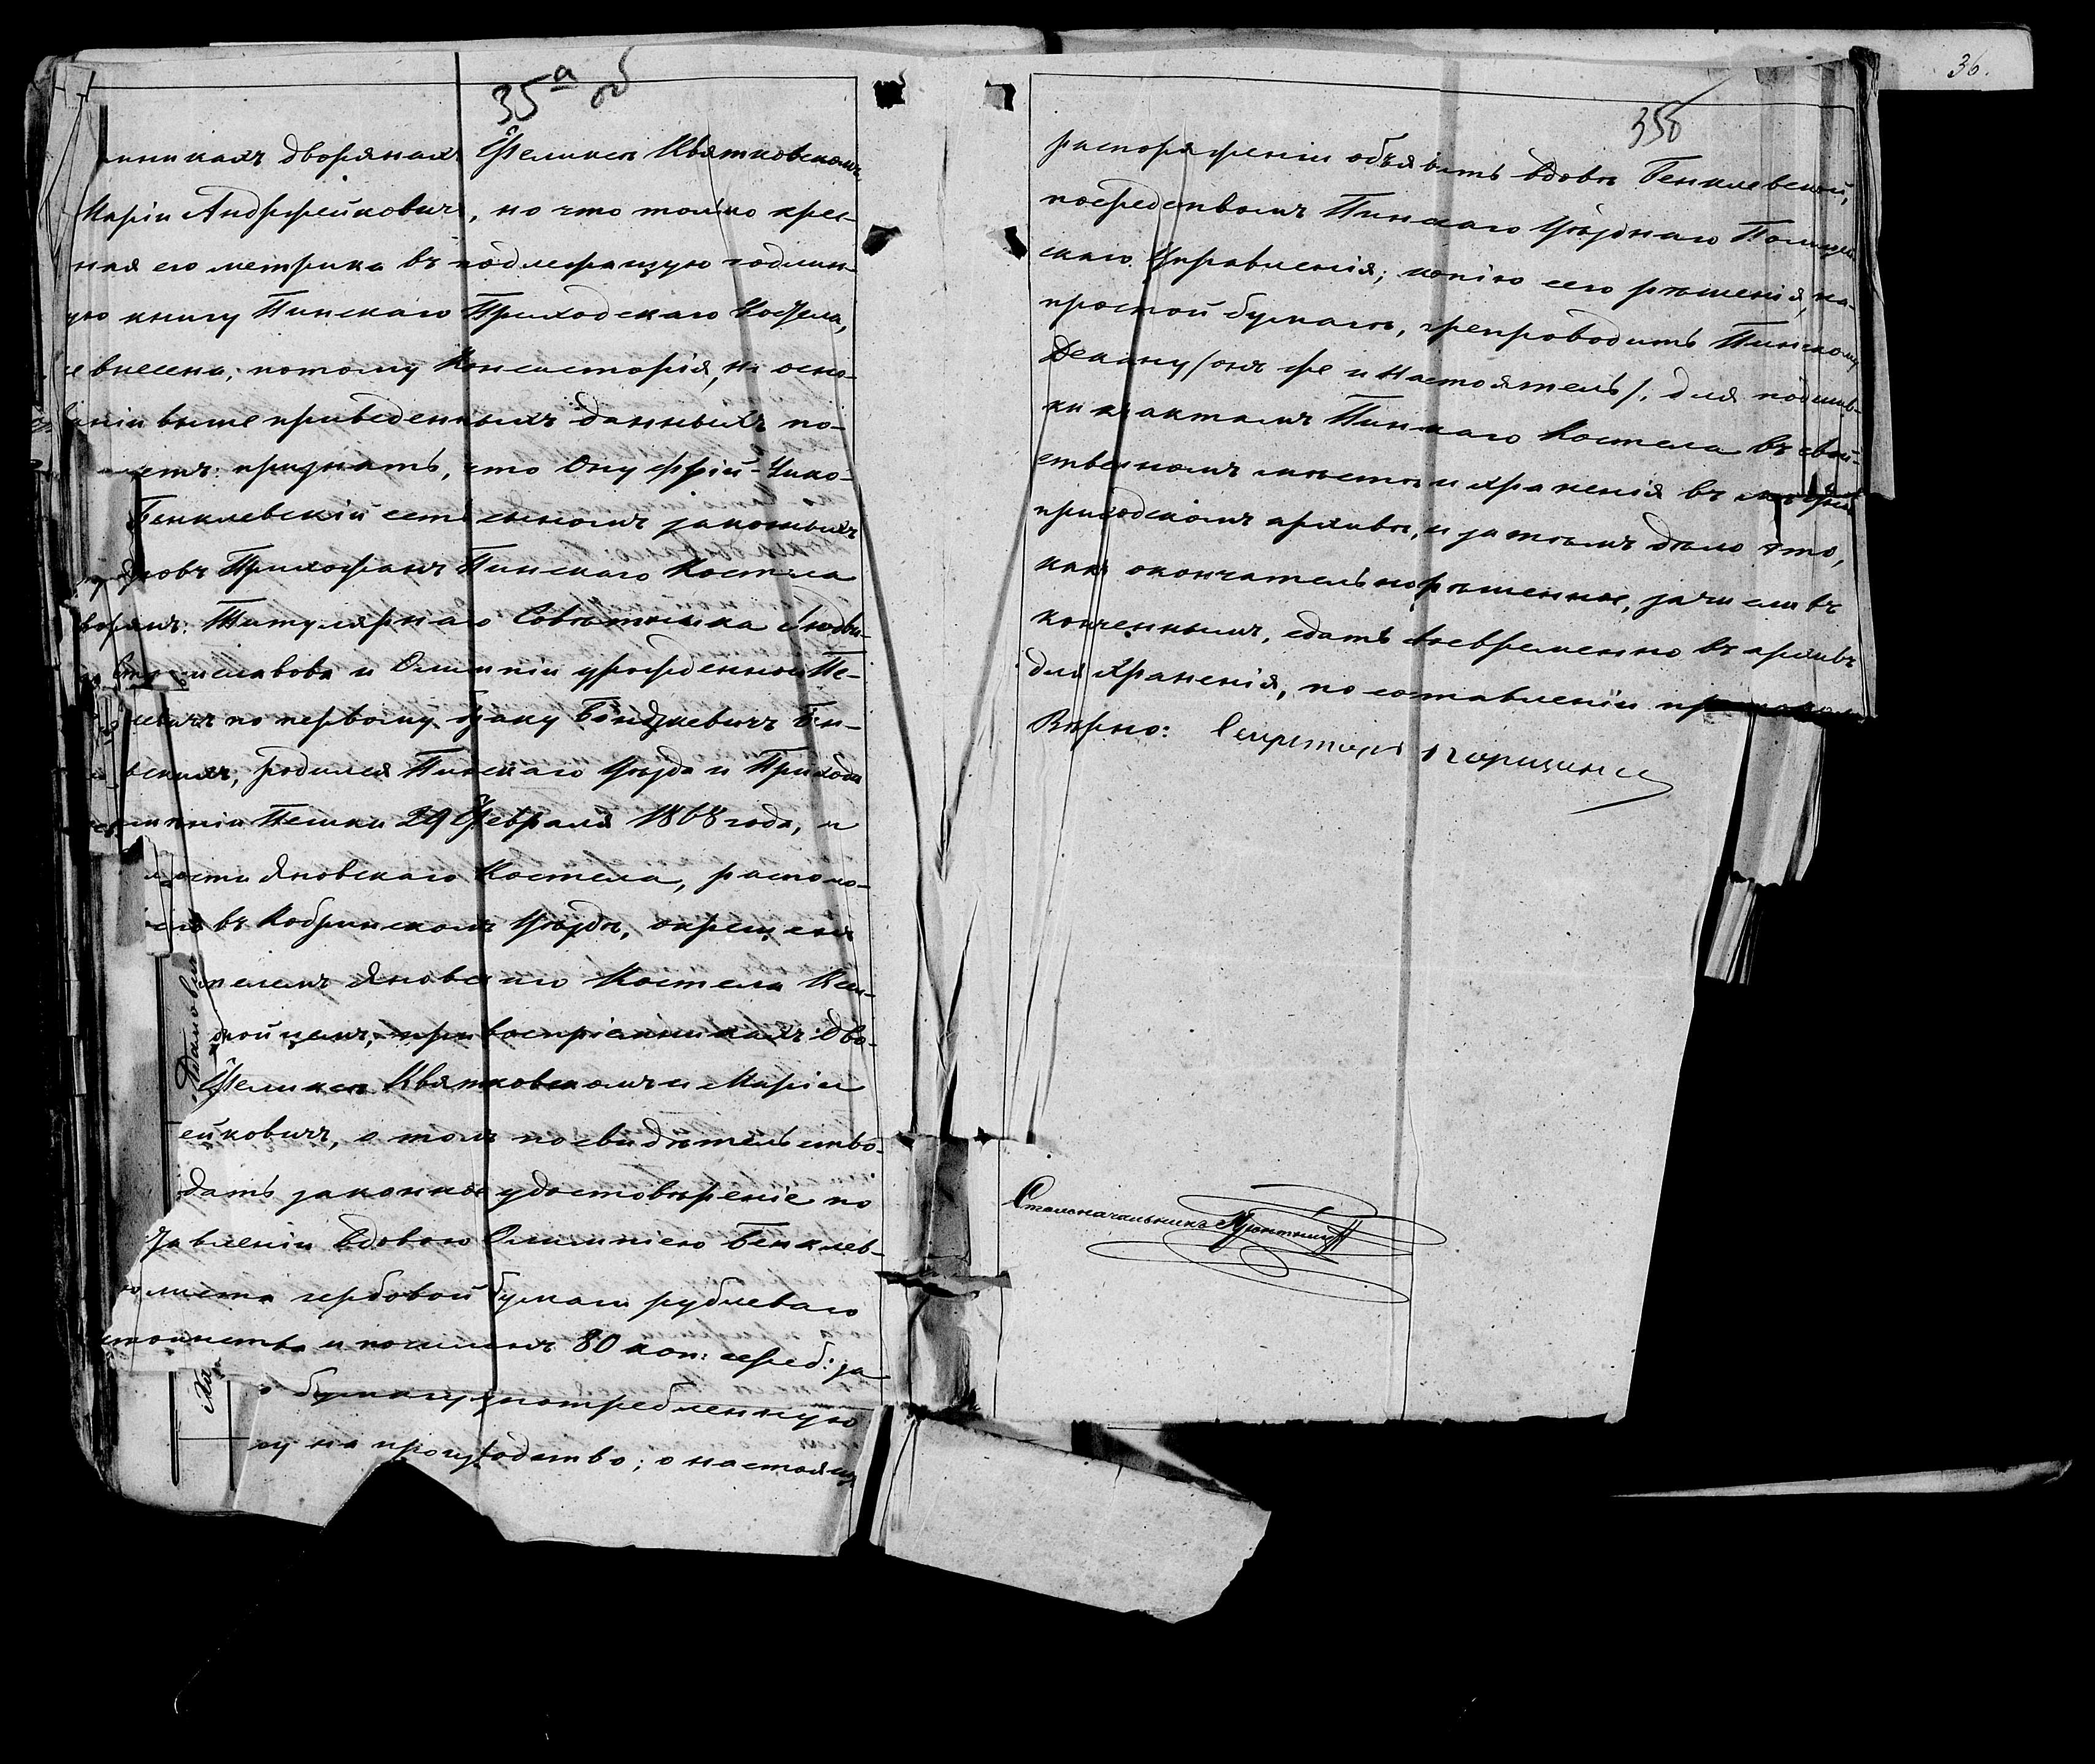 35а об
никахъ дворянахъ Феликсѣ Квятковскомъ,
Маріи Андржейковичъ, но что только крест-
ная его метрика въ надлежащую годич-
ую книгу Пинскаго Приходскаго Костела,
е внесена; потому Консисторія, на осно-
аніи выше приведенныхъ данныхъ по-
етъ: признать, что Онуфрій-
Бенклевскій есть сыномъ законныхъ
говъ Прихожанъ Пинскаго Костела
ворянъ: Титулярнаго Совѣтника
и Олимпіи урожденной Пе-
по первому браку Бен-
вскихъ, родился Пинскаго Уѣзда и Прихода
имѣніи Пешки 29 Февраля 1868 года, и
Яновскаго Костела, располо-
въ Кобринскомъ Уѣздѣ, окрещенъ
телемъ Яновскаго Костела
при воспріемникахъ: дво-
Феликсѣ Квятковскомъ и Маріи
ейковичъ, о томъ по свидѣтельство
дать законное удостовѣреніе по
явленіи вдовою Олимпіею Бенклев-
листа гербовой бумаги рублеваго
стоинства и пошлинъ 80 коп: сереб: за
бумагу употребленную
на производство; о настоящ
36.
35б
распоряженіи объявить вдовѣ Бенклевской,
посредствомъ Пинскаго Уѣзднаго Полицей
скаго Управленія; копію сего рѣшенія, на
простой бумагѣ, препроводить Пинскому
Декану /онъ же и Настоятель/, для подшив-
ки къ актамъ Пинскаго Костела въ свой-
ственномъ мѣстѣ и храненія въ
приходскомъ архивѣ, и затѣмъ дѣло это,
какъ окончательно рѣшенное, зачисливъ
конченнымъ, сдать своевременно въ архивъ
для храненія, по составленіи
Вѣрно: Секретарь
Столоначальникъ